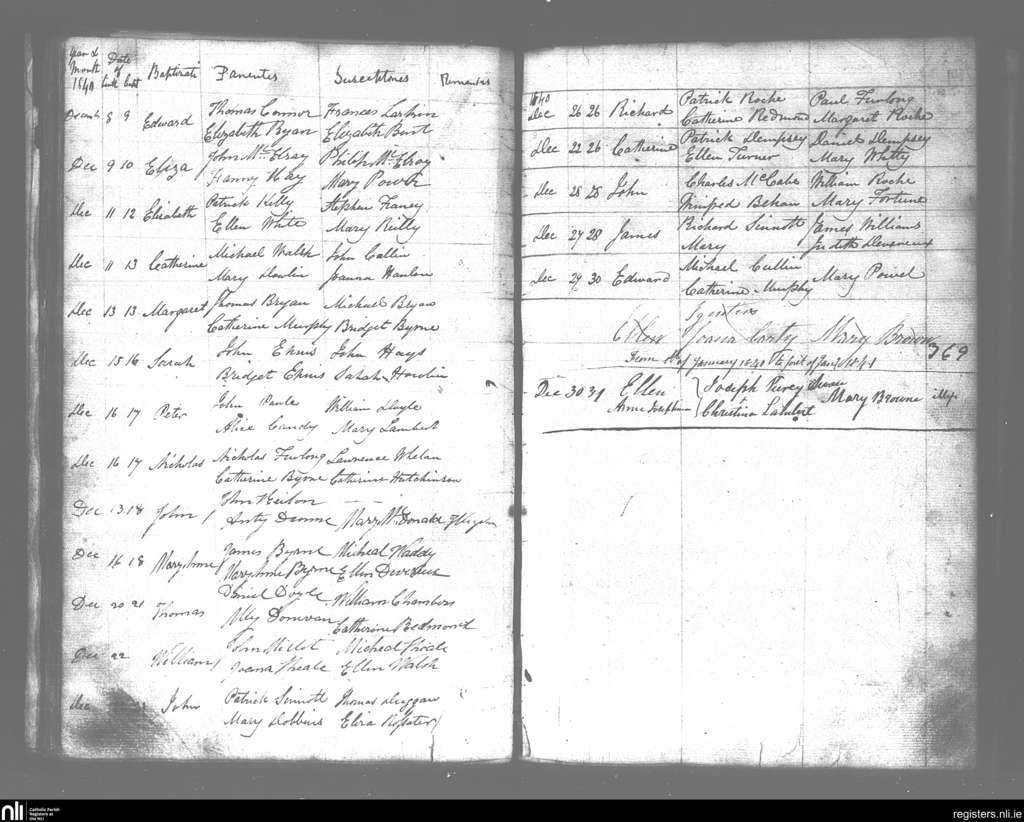 Year & Month 1840 Date of birth bapt Baptizati Parentes Susceptores
Decemb 8 9 Edward Thomas Connor Frances Larkin
Elizabeth Ryan Elizabeth Bent
Dec 9 10 Eliza John McElroy Philip McElroy
Fanny Hay Mary Power
Dec 11 12 Elizabeth Patrick Kelly Stephen
Ellen White Mary Reilly
Dec 11 13 Catherine Michael Walsh John Cullin
Mary Dowlin Joanna Hanlon
Dec 13 13 Margaret Thomas Bryan Michael Bryan
Catherine Murphy Bridget Byrne
Dec 15 16 Sarah John Ennis John Hays
Bridget Ennis Sarah
Dec 16 17 Peter John William Doyle
Alice Candy Mary Lambert
Dec 16 17 Nicholas Nicholas Furlong Lawrence Whelan
Catherine Byrne Catherine Hutchinson
Dec 13 18 John John
Anty Mary McDonald
Dec 14 18 Mary Anne James Byrne Micheal Waddy
Mary Anne Byrne Ellen Devereux
Dec 20 21 Thomas Daniel Doyle William Chambers
Ally Donovan Catherine Redmond
Dec 22 William John Micheal
Joana Ellen Walsh
Dec John Patrick Sinnott Thomas Duggan
Mary Dobbins Eliza Rossiter
1840
Dec 26 26 Richard Patrick Roche Paul Furlong
Catherine Redmond Margaret Roche
Dec 22 26 Catherine Patrick Dempsey Daniel Dempsey
Ellen Turner Mary Whitty
Dec 28 28 John Charles McCabe William Roche
Winifred Behan Mary Fortune
Dec 27 28 James Richard Sinnott James Williams
Mary Judith Devereux
Dec 29 30 Edward Michael Cullin Mary Powel
Catherine Murphy
Ellen Joana Carty Mary Brown
369
From 1st of January 1840 to first of Jany 1841
Dec 30 31 Ellen Joseph Mary Browne illeg.
Anne Josephine Christina Lambert
nli
Catholic Parish
Registers at
the NLI
registers.nli.ie